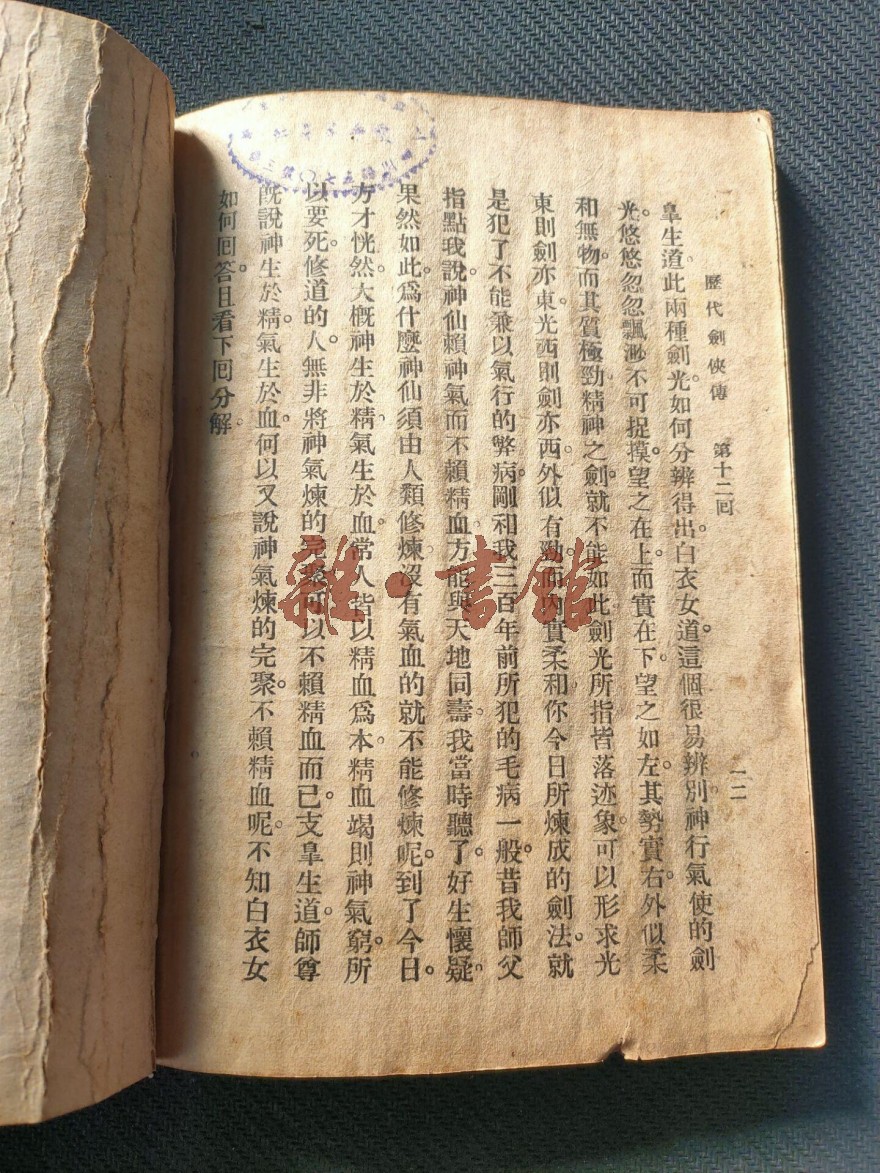 歷代劍俠傳　第十二回　一二
皐生道此兩種劍光。如何分辨得出。白衣女道。這個很易辨別。神行氣使的劍
光。悠悠忽忽。飄渺不可捉摸。望之在上。而實在下。望之如左。其勢實右。外似柔
和無物。而其質極勁。精神之劍。就不能如此。劍光所指。皆落迹象。可以形求。光
東則劍亦東。光西則劍亦西。外似有勁。而內實柔和。你今日所煉成的劍法。就
是犯了不能兼以氣行的弊病。剛和我三百年前所犯的毛病一般。昔我師父
指點我。說神仙賴神氣。而不賴精血。方能與天地同壽。我當時聽了。好生懷疑。
果然如此。爲什麼神仙須由人類修煉。沒有氣血的就不能修煉呢。到了今日。
方才恍然。大槪神生於精。氣生於血。常人皆以精血爲本。精血竭則神氣窮。所
以要死。修道的人。無非將神氣煉的完聚。可以不賴精血而已。支皐生道。師尊
旣說神生於精。氣生於血。何以又說神氣煉的完聚。不賴精血呢。不知白衣女
如何回答。且看下回分解。
雜·書館